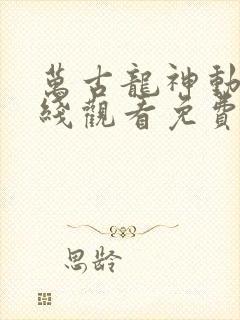 萬古龍神動
綫觀看免費
思齡